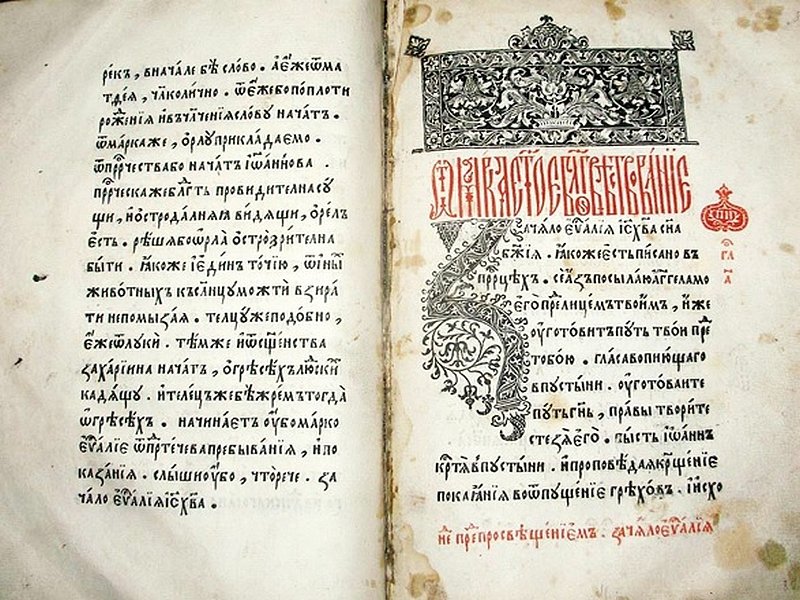 рекъ, вначале бѣ слово. аеже ѿма
тдея, чл҃колично. ѿежебо поплоти
роженїя ивъчл҃ченїя слову начатъ.
ѿмаркаже, орлу прикладаемо.
ѿпрⷪ҇рчествабо начатъ іѡаннова.
прⷪ҇рческа жебл҃гть провидителна су
щи, и остродалняя видящи, орелъ
есть. решя бо орла острозрителна
быти. якоже і единъ точїю, ѿ инѣⷯ
животныхъ къслн҃цу можтъ взира
ти непомызая. телцу же подобно,
еже ѿлуки. тѣмже иѿсщ҃енства
захарїина начатъ, огресехъ людскиⷯ
кадящу. ителецъ же бе жремъ тогда
ѡгресехъ. начинаетъ оубо марко
еѵⷢ҇алїе ѿпрⷣ҇течева пребыванїя, ипо
казанїя. слыши оубо, что рече. за
чало еѵⷢ҇алїя іс҃ хв҃а.
зачяло еѵⷢ҇алїя іс҃ хв҃а сн҃а
бж҃їя. якоже есть писано въ
прⷪ҇рцѣхъ. се азъ посылаю аггела мо
его пред лицемъ твоимъ, иже
оуготовитъ путь твои пре
тобою. гласъ вопиющаго
впустыни. оуготоваите
путь гн҃ь, правы творите
стезя его. бысть іѡаннъ
крⷭ҇тя впустыни. и проповедая крщ҃енїе
покаянїя во ѿпущенїе греховъ. і исхо
неⷣ прⷣе просвещенїемъ. зачяло еѵⷢ҇алїя